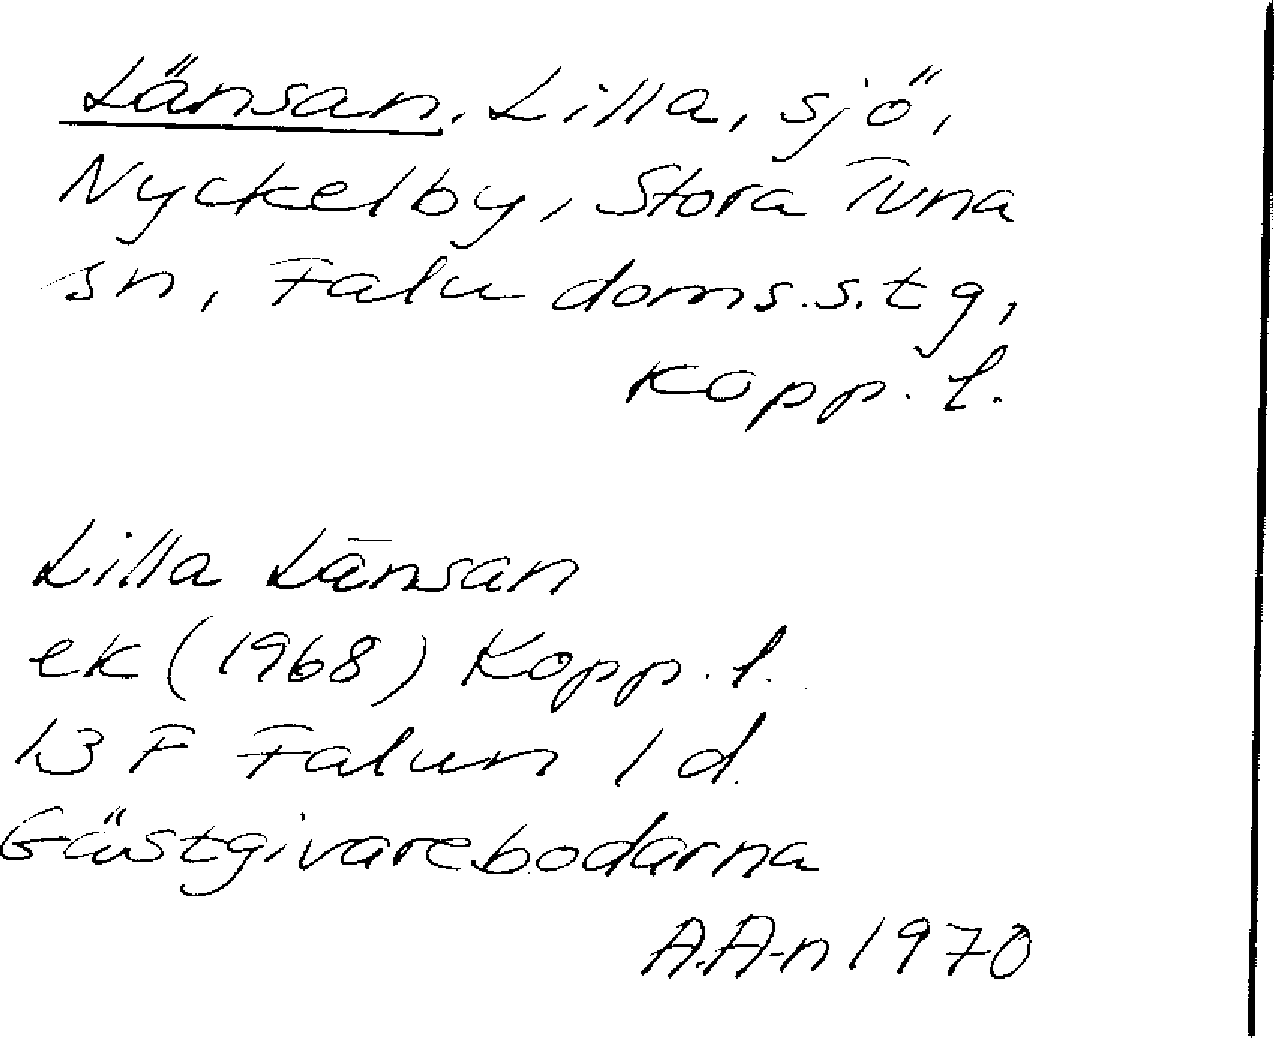 Länsan, Lilla, sjö,
Nyckelby, Stora Tuna
sn, Falu doms.s.tg,
Kopp. l.
Lilla Länsan
ek (1968) Kopp. l.
13 F Falun 1 d.
Gästgivarebodarna
A.A-n 1970